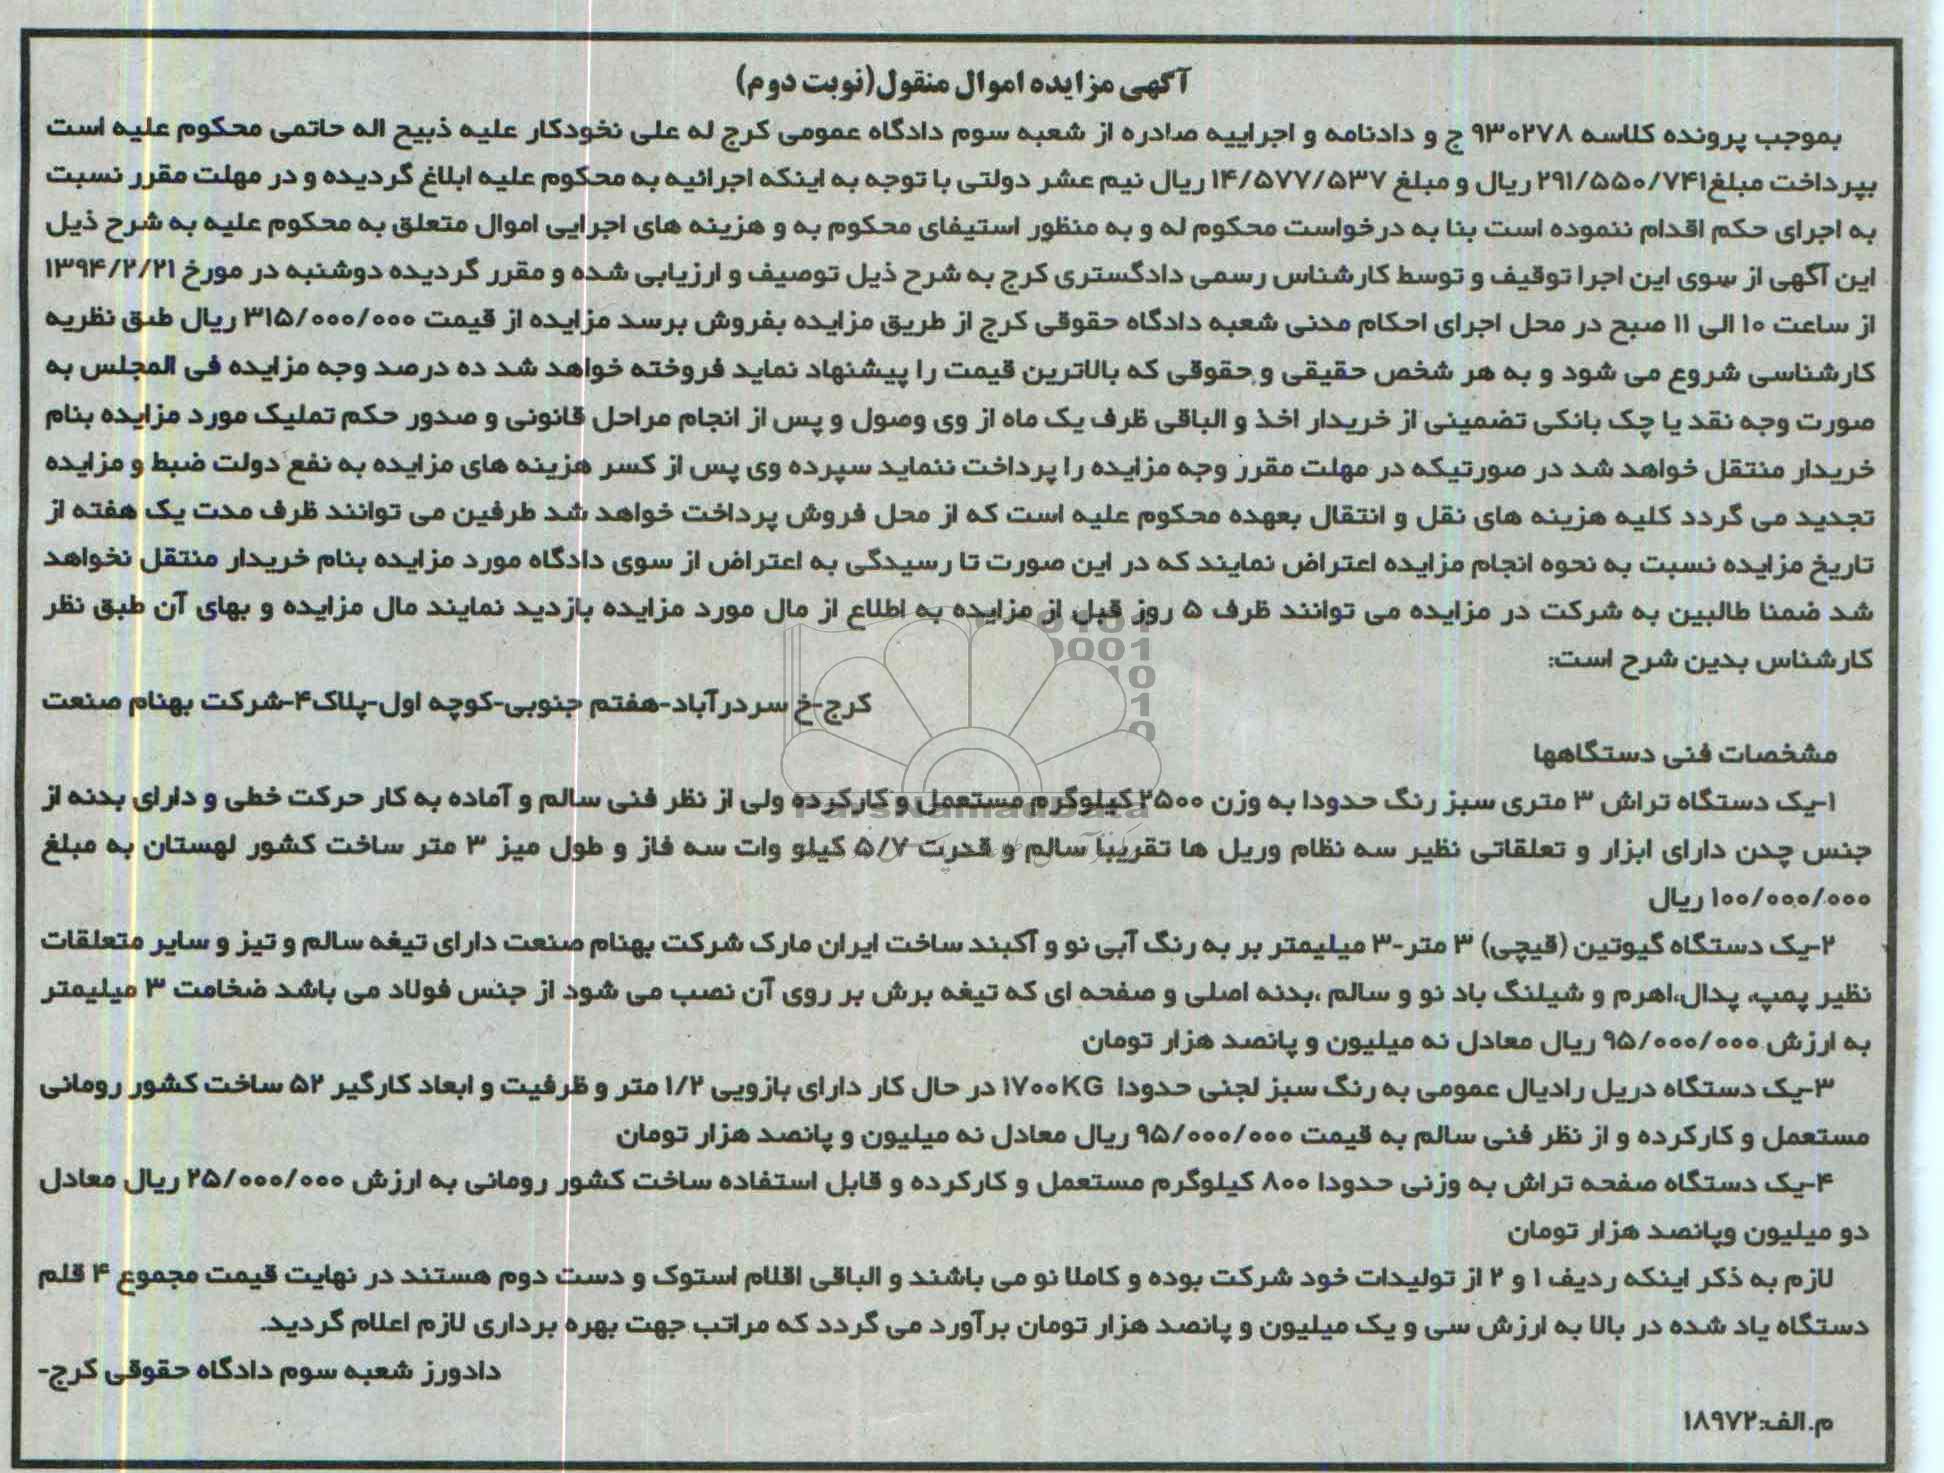 آگهی مزایده اموال منقول(نوبت دوم)
بموجب پرونده کلاسه ۹۳۰۲۷۸ ج و دادنامه و اجراییه صادره از شعبه سوم دادگاه عمومی کرج له علی نخودکار علیه ذبیح اله حاتمی محکوم علیه است
بپرداخت مبلغ۲۹۱/۵۵۰/۷۴۱ ریال و مبلغ ۱۴/۵۷۷/۵۳۷ ریال نیم عشر دولتی با توجه به اینکه اجرائیه به محکوم علیه ابلاغ گردیده و در مهلت مقرر نسبت
به اجرای حکم اقدام ننموده است بنا به درخواست محکوم له و به منظور استیفای محکوم به و هزینه های اجرایی اموال متعلق به محکوم علیه به شرح ذیل
این آگهی از سوی این اجرا توقیف و توسط کارشناس رسمی دادگستری کرج به شرح ذیل توصیف و ارزیابی شده و مقرر گردیده دوشنبه در مورخ ۱۳۹۴/۲/۲۱
از ساعت ۱۰ الی ۱۱ صبح در محل اجرای احکام مدنی شعبه دادگاه حقوقی کرج از طریق مزایده بفروش برسد مزایده از قیمت ۳۱۵/۰۰۰/۰۰۰ ریال طبق نظریه
کارشناسی شروع می شود و به هر شخص حقیقی و حقوقی که بالاترین قیمت را پیشنهاد نماید فروخته خواهد شد ده درصد وجه مزایده فی المجلس به
صورت وجه نقد یا چک بانکی تضمینی از خریدار اخذ و الباقی ظرف یک ماه از وی وصول و پس از انجام مراحل قانونی و صدور حکم تملیک مورد مزایده بنام
خریدار منتقل خواهد شد در صورتیکه در مهلت مقرر وجه مزایده را پرداخت ننماید سپرده وی پس از کسر هزینه های مزایده به نفع دولت ضبط و مزایده
تجدید می گردد کلیه هزینه های نقل و انتقال بعهده محکوم علیه است که از محل فروش پرداخت خواهد شد طرفین می توانند ظرف مدت یک هفته از
تاریخ مزایده نسبت به نحوه انجام مزایده اعتراض نمایند که در این صورت تا رسیدگی به اعتراض از سوی دادگاه مورد مزایده بنام خریدار منتقل نخواهد
شد ضمنا طالبین به شرکت در مزایده می توانند ظرف ۵ روز قبل از مزایده به اطلاع از مال مورد مزایده بازدید نمایند مال مزایده و بهای آن طبق نظر
کارشناس بدین شرح است:
کرج-خ سردرآباد-هفتم جنوبی-کوچه اول-پلاک۴-شرکت بهنام صنعت
مشخصات فنی دستگاهها
۱-یک دستگاه تراش ۳ متری سبز رنگ حدودا به وزن ۲۵۰۰ کیلوگرم مستعمل و کارکرده ولی از نظر فنی سالم و آماده به کار حرکت خطی و دارای بدنه از
جنس چدن دارای ابزار و تعلقاتی نظیر سه نظام وریل ها تقریبا سالم و قدرت ۵/۷ کیلو وات سه فاز و طول میز ۳ متر ساخت کشور لهستان به مبلغ
۱۰۰/۰۰۰/۰۰۰ ریال
۲-یک دستگاه گیوتین (قیچی) ۳ متر-۳ میلیمتر بر به رنگ آبی نو و آکبند ساخت ایران مارک شرکت بهنام صنعت دارای تیغه سالم و تیز و سایر متعلقات
نظیر پمپ، پدال،اهرم و شیلنگ باد نو و سالم ،بدنه اصلی و صفحه ای که تیغه برش بر روی آن نصب می شود از جنس فولاد می باشد ضخامت ۳ میلیمتر
به ارزش ۹۵/۰۰۰/۰۰۰ ریال معادل نه میلیون و پانصد هزار تومان
۳-یک دستگاه دریل رادیال عمومی به رنگ سبز لجنی حدودا ۱۷۰۰KG در حال کار دارای بازویی ۱/۲ متر و ظرفیت و ابعاد کارگیر ۵۲ ساخت کشور رومانی
مستعمل و کارکرده و از نظر فنی سالم به قیمت ۹۵/۰۰۰/۰۰۰ ریال معادل نه میلیون و پانصد هزار تومان
۴-یک دستگاه صفحه تراش به وزنی حدودا ۸۰۰ کیلوگرم مستعمل و کارکرده و قابل استفاده ساخت کشور رومانی به ارزش ۲۵/۰۰۰/۰۰۰ ریال معادل
دو میلیون وپانصد هزار تومان
لازم به ذکر اینکه ردیف ۱ و ۲ از تولیدات خود شرکت بوده و کاملا نو می باشند و الباقی اقلام استوک و دست دوم هستند در نهایت قیمت مجموع ۴ قلم
دستگاه یاد شده در بالا به ارزش سی و یک میلیون و پانصد هزار تومان برآورد می گردد که مراتب جهت بهره برداری لازم اعلام گردید.
دادورز شعبه سوم دادگاه حقوقی کرج-
م.الف:۱۸۹۷۲
ParsNamadData